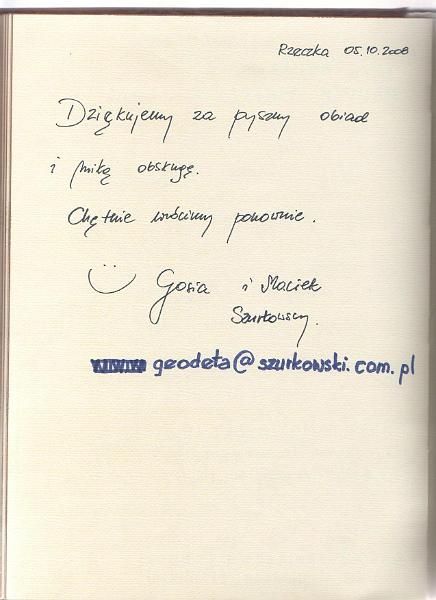 Rzeczka 05.10.2008
Dziękujemy za pyszny obiad
i miłą obsługę.
Chętnie wrócimy ponownie.
Gosia i Maciek
Szurkowscy.
geodeta@szurkowski.com.pl